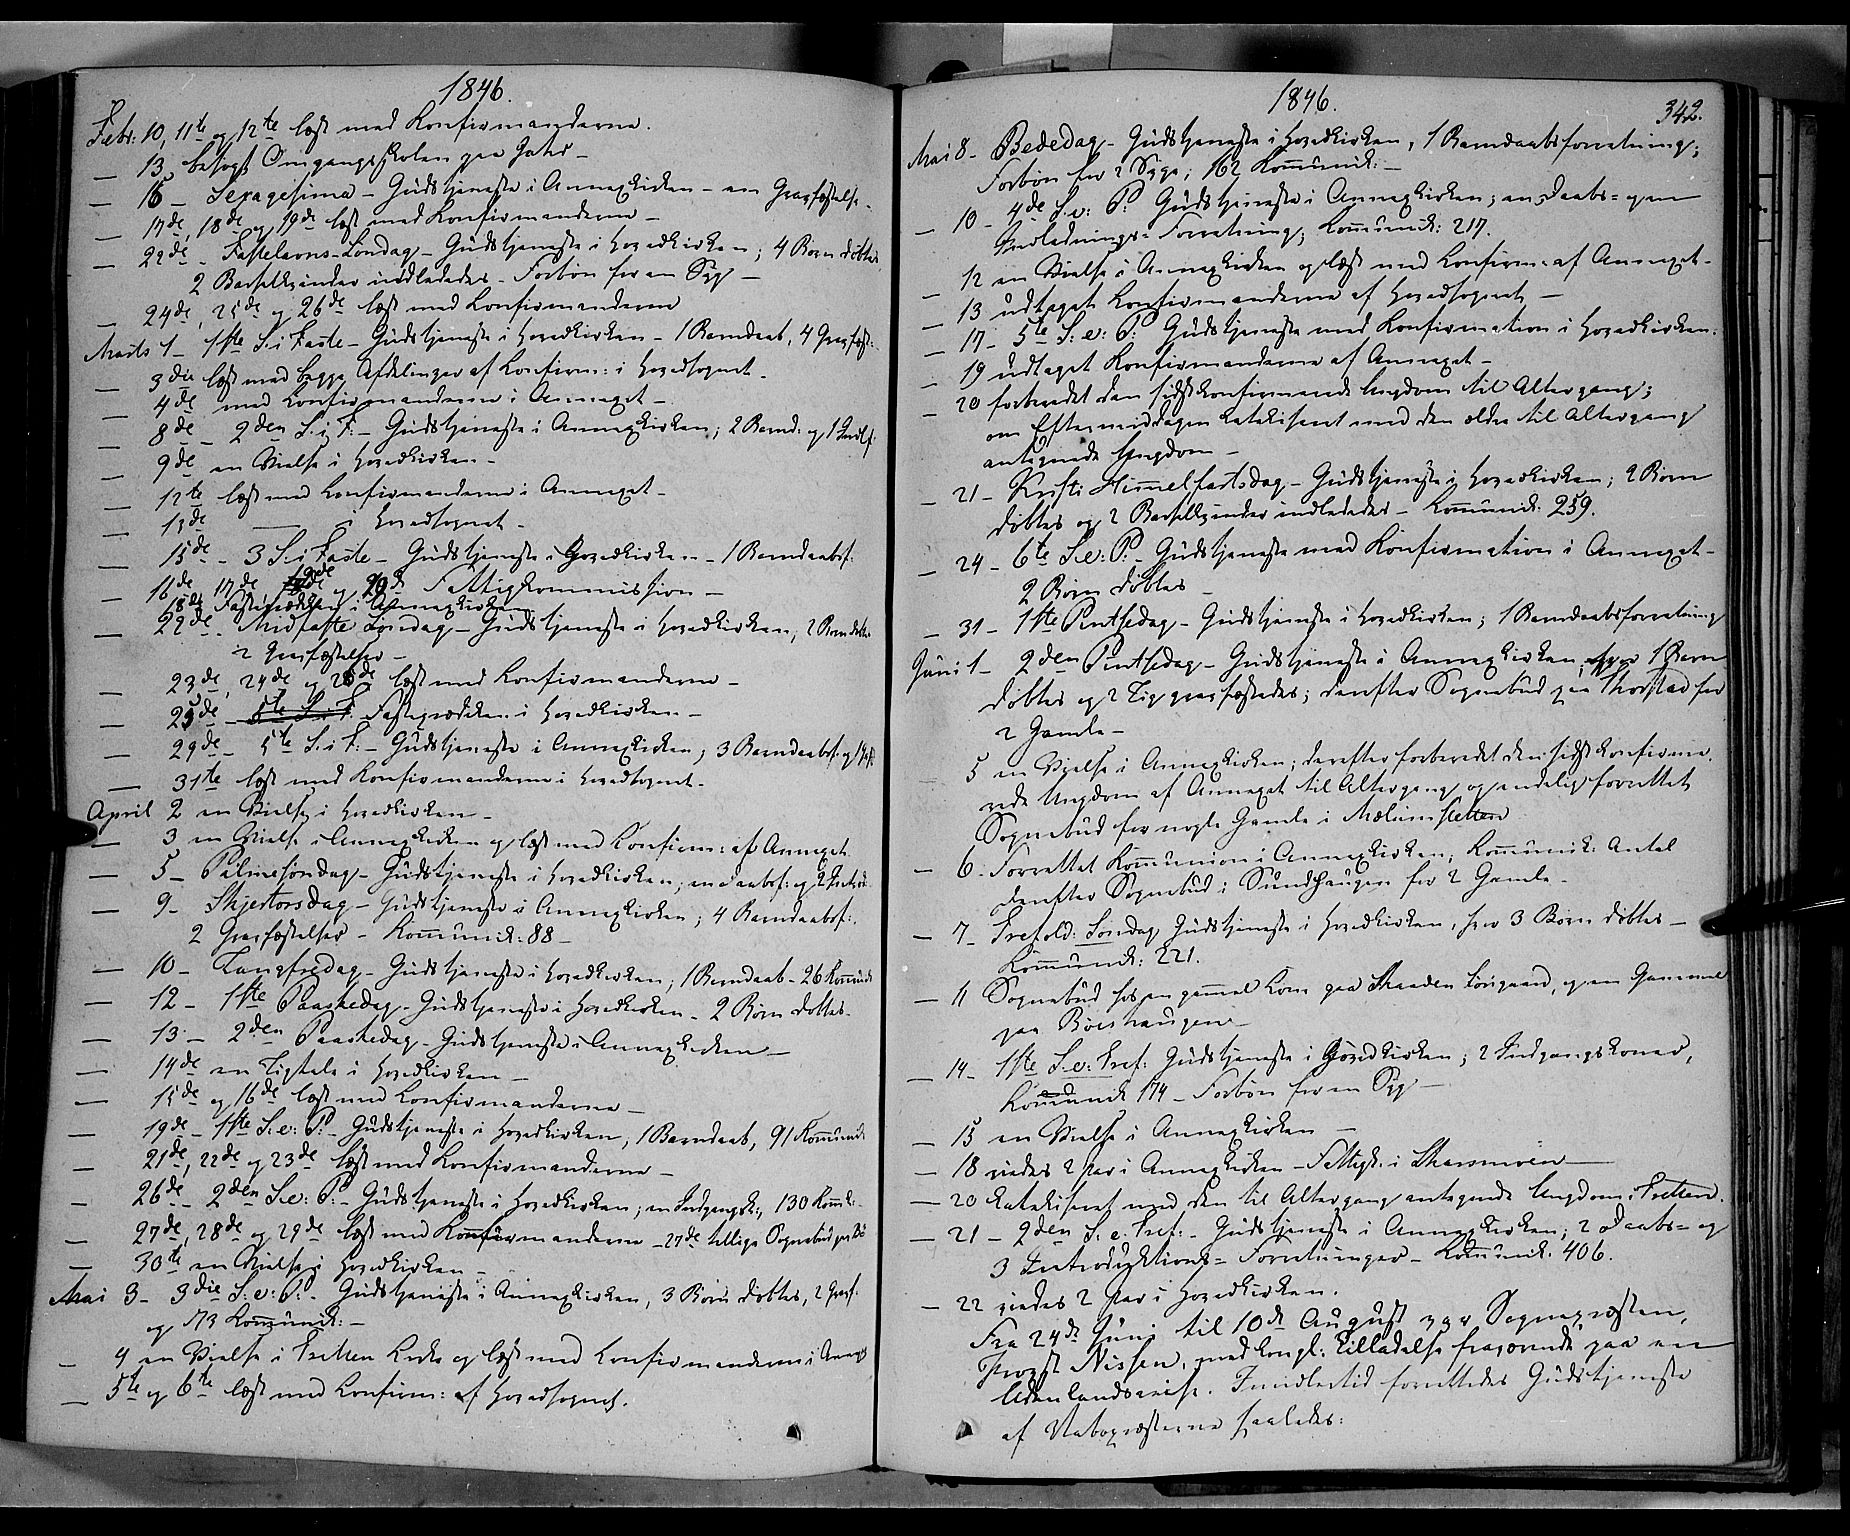 1846.
Febr. 10, 11te og 12te læst med Konfirmanderne.
— 13 besøgt Omgangsskolen paa
— 15 – Sexagesima – Gudstjeneste i Annexkirken – en Gravfæstelse.
— 17de, 18de og 19de læst med Konfirmanderne –
— 22de – Fastelavns-Søndag – Gudstjeneste i Hovedkirken; 4 Børn døbtes
2 Barselkvinder indlededes – Forbøn for en Syg –
— 24de, 25de og 26de læst med Konfirmanderne
Marts 1 – 1ste S. i Faste – Gudstjeneste i Hovedkirken – 1 Barndaab, 4 Gravfæst:
— 3die læst med begge Afdelinger af Konfirm: i Hovedsognet.
— 4de med Konfirmanderne i Annexet –
— 8de – 2den S. i F. – Gudstjeneste i Annexkirken; 2 Barnd: og 1
— 9de en Vielse i Hovedkirken –
— 12te læst med Konfirmanderne i Annexet –
— 13de — i Hovedsognet –
— 15de – 3 S. i Faste – Gudstjeneste i Hovedkirken – 1 Barndaabsf:
— 16de 17de 19de og 20de Fattigkommission –
18de Fasteprædiken i Annexkirken
— 22de – Midfaste Søndag – Gudstjeneste i Hovedkirken, 2 Børn døbtes
2 Gravfæstelser –
— 23de, 24de og 26de læst med Konfirmanderne –
— 25de – 5te S. i F. Fasteprædiken i Hovedkirken –
— 29de – 5te S. i F. – Gudstjeneste i Annexkirken; 3 Barndaabsf. og 1
— 31te læst med Konfirmanderne i Hovedsognet.
April 2 en Vielse i Hovedkirken –
— 3 en Vielse i Annexkirken og læst med Konfirm: af Annexet
— 5 – Palmesøndag – Gudstjeneste i Hovedkirken; en Daabsf: og 2
— 9 – Skjertorsdag – Gudstjeneste i Annexkirken; 4 Barndaabsf:
2 Gravfæstelser – Kommunik: 88 –
— 10 – Langfredag – Gudstjeneste i Hovedkirken; 1 Barndaab – 26 Kommunik
— 12 – 1ste Paaskedag – Gudstjeneste i Hovedkirken – 2 Børn døbtes –
— 13 – 2den Paaskedag – Gudstjeneste i Annexkirken –
— 14de en Ligtale i Hovedkirken –
— 15de og 16de læst med Konfirmanderne –
— 19de – 1ste S. e: P: – Gudstjeneste i Hovedkirken, 1 Barndaab, 91 Kommunik
— 21de, 22de og 23de læst med Konfirmanderne –
— 26de – 2den S. e: P: – Gudstjeneste i Hovedkirken; en Indgangsk:, 130 Komk:
— 27de, 28de og 29de læst med Konfirmanderne – 27de tillige Sognebud paa
— 30te en Vielse i Hovedkirken –
Mai 3 – 3die S: e: P: – Gudstjeneste i Annexkirken, 3 Børn døbtes, 2 Gravf:
og 173 Kommunik: –
— 4 en Vielse i Tretten Kirke og læst med Konfirmanderne i Annex
— 5te og 6te læst med Konfirm: af Hovedsognet.
1846.
342.
Mai 8 – Bededag – Gudstjeneste i Hovedkirken, 1 Barndaabsforretning;
Forbøn for 2 Syge; 162 Kommunik: –
— 10 – 4de S. e: P: Gudstjeneste i Annexkirken; en Daabs= og en
Indlednings= Forretning; Kommunik: 217.
— 12 en Vielse i Annexkirken og læst med Konfirm: af Annexet –
— 13 udtaget Konfirmanderne af Hovedsognet –
— 17 – 5te S: e: P: Gudstjeneste med Konfirmation i Hovedkirken.
— 19 udtaget Konfirmanderne af Annexet –
— 20 forberedet den sidstkonfirmerede Ungdom til Altergang;
om Eftermiddagen katekiseret med den ældre til Altergang
antegnede Ungdom –
— 21 – Kristi Himmelfartsdag – Gudstjeneste i Hovedkirken; 2 Børn
døbtes og 2 Barselkvinder indlededes – Kommunik. 259.
— 24 – 6te S. e: P: – Gudstjeneste med Konfirmation i Annexet –
2 Børn døbtes –
— 31 – 1ste Pintsedag – Gudstjeneste i Hovedkirken; 1 Barndaabsforretning
Juni 1 – 2den Pintsedag – Gudstjeneste i Annexkirken, hvor 1 Barn
døbtes og 2 Lig gravfæstedes; derefter Sognebud paa Thorstad for
2 Gamle –
5 en Vielse i Annexkirken; derefter forberedet den sidst konfirme
rede Ungdom af Annexet til Altergang og endelig forrettet
Sognebud for nogle Gamle i Mælumsletten
— 6 – Forrettet Kommunion i Annexkirken; Kommunik: Antal
derefter Sognebud i Sundhaugen for 2 Gamle –
— 7 – Trefold: Søndag Gudstjeneste i Hovedkirken, hvor 3 Børn døbtes –
Kommunik: 221.
— 11 Sognebud hos en gammel Kone paa Skaaden Sørigaard, og en Gammel
paa Boershaugen –
— 14 – 1ste S. e: Tref: Gudstjeneste i Hovedkirken; 2 Indgangskoner,
Kommunik 174 – Forbøn for en Syg –
— 15 en Vielse i Annexkirken –
— 18 viedes 2 Par i Annexkirken – Fattigk. i Skarsmoen –
— 20 katekiseret med den til Altergang antegnede Ungdom i Tretten.
— 21 – 2den S. e. Tref: – Gudstjeneste i Annexkirken; 2 Daabs= og
3 Introduktions= Forretninger – Kommunik. 406.
— 22 viedes 2 Par i Hovedkirken.
Fra 24de Juni til 10de August var Sognepræsten,
Provst Nissen, med kongl: Tilladelse fraværende paa en
Udenlandsreise. Imidlertid forrettedes Gudstjeneste
af Nabopræsterne saaledes: